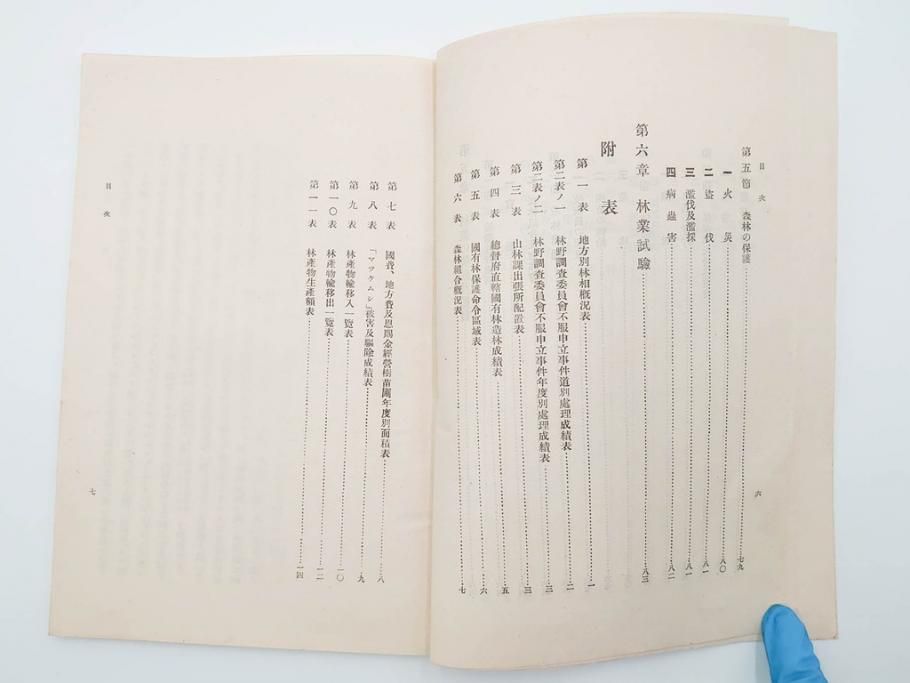 目次
第五節 森林の保護……七九
一 火災……八〇
二 盜伐……八一
三 濫伐及濫採……八一
四 病蟲害……八二
第六章 林業試驗……八三
附表
第一表 地方別林相槪況表……一
第二表ノ一 林野調査委員會不服申立事件道別處理成績表……二
第二表ノ二 林野調査委員會不服申立事件年度別處理成績表……三
第三表 山林課出張所配置表……三
第四表 總督府直轄國有林造林成績表……五
第五表 國有林保護命令區域表……六
第六表 森林組合槪況表……七
六
目次
第七表 國費、地方費及恩賜金經營樹苗圃年度別面積表……八
第八表 「マツケムシ」被害及驅除成績表……九
第九表 林產物輸移入一覽表……一〇
第一〇表 林產物輸移出一覽表……一二
第一一表 林產物生產額表……一四
七